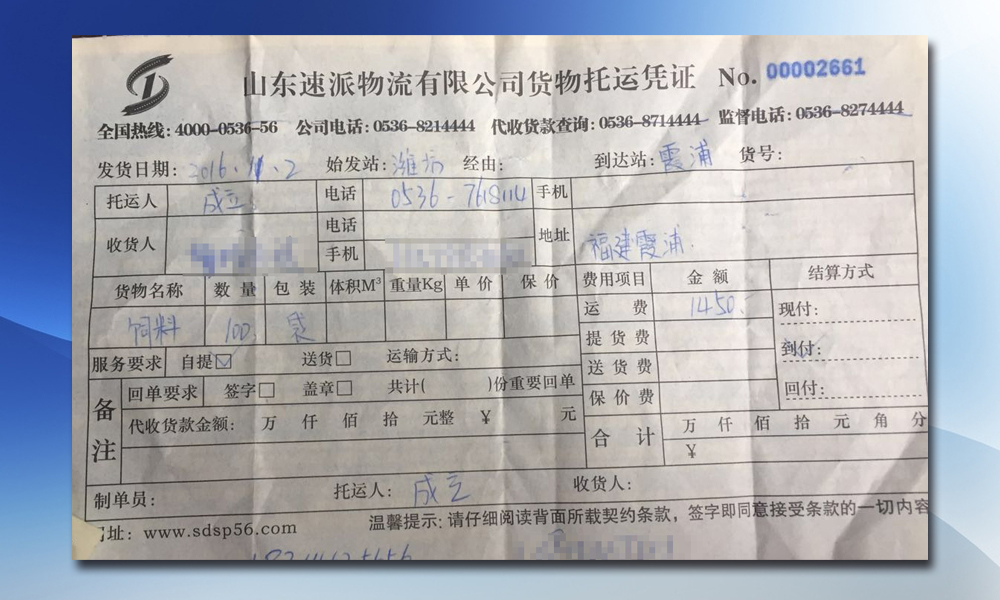 山东速派物流有限公司货物托运凭证 No. 00002661
全国热线: 4000-0536-56 公司电话: 0536-8214444 代收货款查询: 0536-8714444 监督电话: 0536-8274444
发货日期: 2016.11.2 始发站: 潍坊 经由: 到达站: 霞浦 货号:
托运人 成立 电话 0536-7618114 手机
收货人 电话 手机 地址 福建霞浦
货物名称 数量 包装 体积M³ 重量Kg 单价 保价 费用项目 金额 结算方式
饲料 100 袋 运费 1450.- 现付:
提货费 到付:
服务要求 自提☑ 送货□ 运输方式: 送货费
备注 回单要求 签字□ 盖章□ 共计( )份重要回单 保价费 回付:
代收货款金额: 万 仟 佰 拾 元整 ¥ 元 合计 万 仟 佰 拾 元 角 分
¥
制单员: 托运人: 成立 收货人:
址: www.sdsp56.com 温馨提示: 请仔细阅读背面所载契约条款，签字即同意接受条款的一切内容